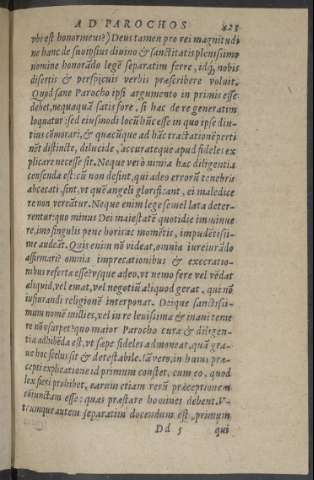 AD PAROCHOS 425
vbi est honor meus?) Deus tamen pro rei magnitudi
ne hanc de suo ipsius diuino & sanctitatis plenissimo
nomine honorãdo legẽ separatim ferre, idq́; nobis
disertis & perspicuis verbis præscribere voluit.
Quod sane Parocho ipsi argumento in primis esse
debet, nequaquã satis fore, si hac de re generatim
loquatur: sed eiusmodi locũ hũc esse in quo ipse diu-
tius cõmorari, & quæcũque ad hãc tractationẽ perti
nẽt distincte, dilucide, accurateque apud fideles ex
plicare necesse sit. Neque verò nimia hæc diligentia
censenda est: cũ non desint, qui adeo errorũ tenebris
abcœcati sint, vt quẽ angeli glorificant, ei maledice
re non vereãtur. Neque enim lege semel lata deter-
rentur: quo minus Dei maiestatẽ quotidie imminue
re, imo singulis pene horis ac momẽtis, impudẽtissi-
me audeãt. Quis enim nõ videat, omnia iureiurãdo
affirmari? omnia imprecationibus & execratio-
nibus referta esse? vsque adeo, vt nemo fere vel vẽdat
aliquid, vel emat, vel negotiũ aliquod gerat, qui nõ
iusiurandi religionẽ interponat. Deique sanctissi-
mum nomẽ milties, vel in re leuissima & inani teme
re nõ vsurpet? quo maior Parocho cura & diligen-
tia adhibẽda est, vt sæpe fideles admoneat, quã gra-
ue hoc scelus sit & detestabile. Iã vero, in huius præ-
cepti explicatione id primum constet, cum eo, quod
lex fieri prohibet, earum etiam rerũ præceptionem
cõiunctam esse: quas præstare homines debent. V-
trumque autem separatim docendum est, primum
Dd 5 qui